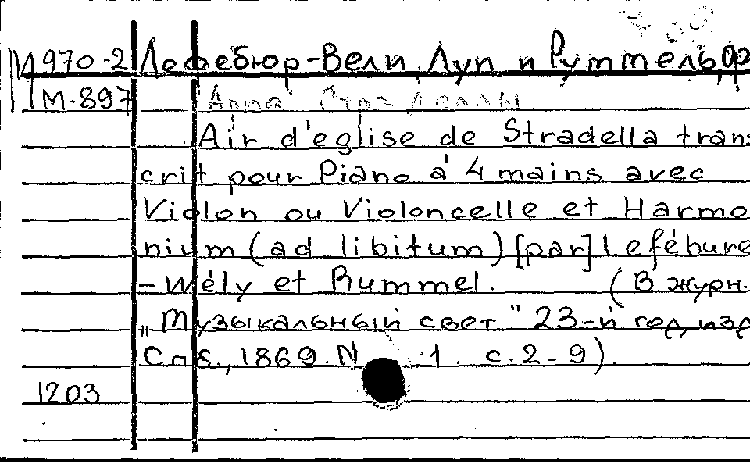 М970-2 Лефебюр-Вели, Луи и Руммель,
М-897
Air d'eglise de Stradella trans
crit pour Piano à 4 mains avec
Violon ou Violoncelle et Harmo
nium (ad libitum) [par] Lefébure
-Wély et Rummel. (В журн.
„Музыкальный свет" 23-й год, изд
Спб., 1869. N 1. с.2-9).
1203